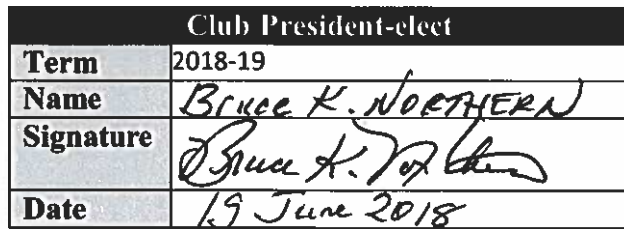 Club President-elect
Term 2018-19
Name Bruce K. NORTHERN
Signature Bruce K. Northern
Date 19 June 2018